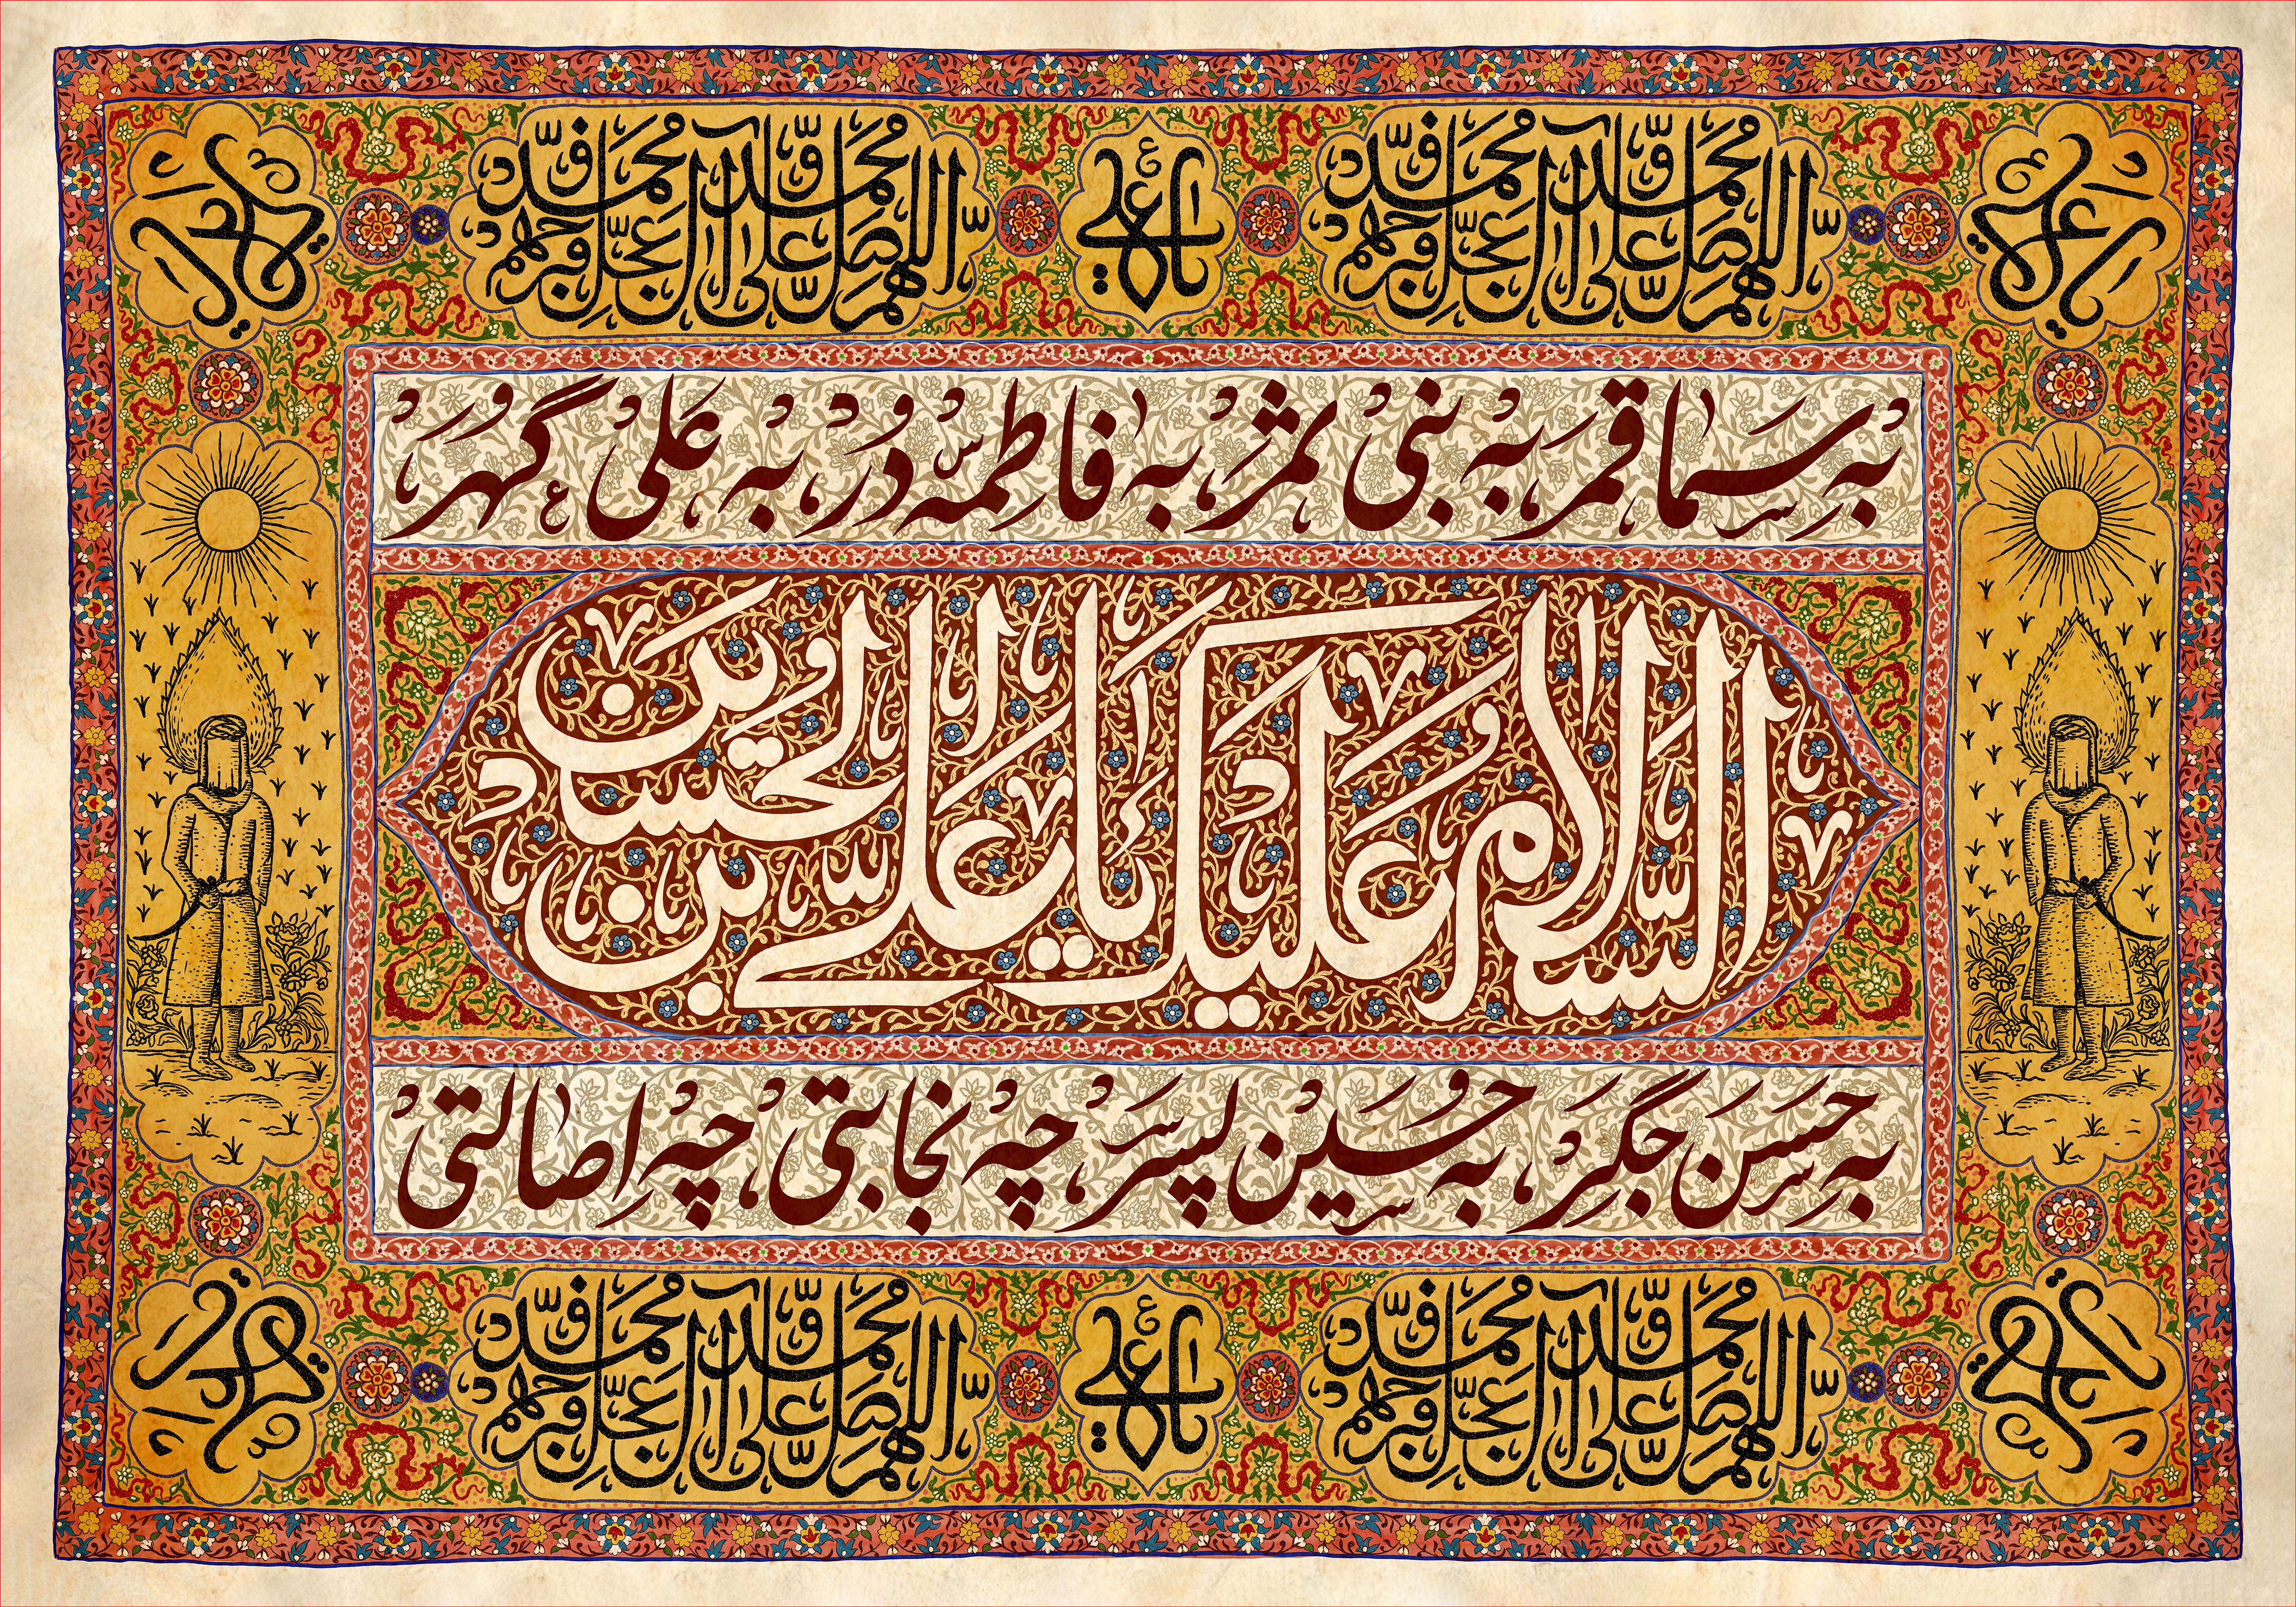 یا علی
اللهم صل علی محمد و آل محمد و عجل فرجهم
یا علی ع
اللهم صل علی محمد و آل محمد و عجل فرجهم
به سما قمر به نبی ثمر به فاطمه س دُرر به علی ع گهر
السلام علیک یا علی بن الحسین
به حسن جگر به حسین پسر چه نجابتی چه اصالتی
اللهم صل علی محمد و آل محمد و عجل فرجهم
یا علی ع
اللهم صل علی محمد و آل محمد و عجل فرجهم